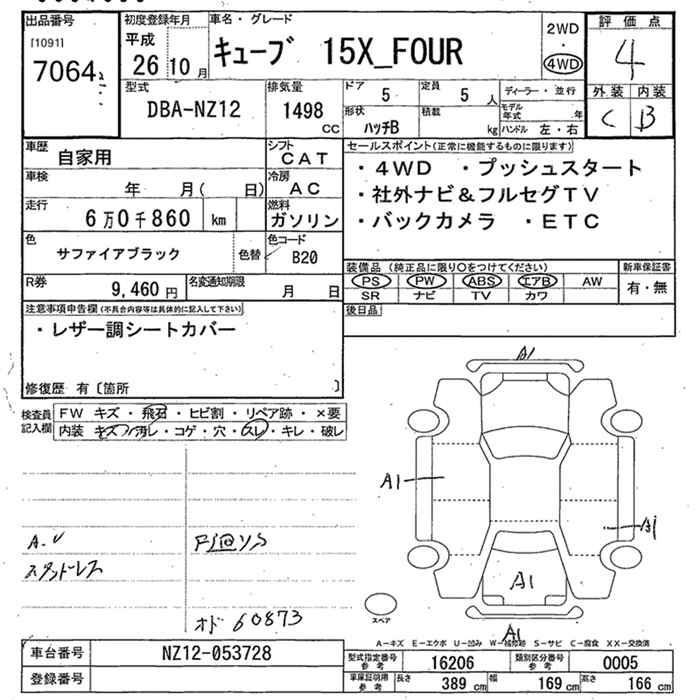 出品番号
[1091]
7064
初度登録年月
平成
26 10月
車名・グレード
キューブ 15X_FOUR
2WD
・
4WD
評価点
4
外装 内装
C B
型式
DBA-NZ12
排気量
1498
CC
ドア
5
定員
5 人
形状
ハッチB
積載
kg
ディーラー・並行
モデル年式 年
ハンドル 左・右
車歴
自家用
シフト
CAT
車検
年 月( 日)
冷房
AC
走行
6万0千860 km
燃料
ガソリン
色
サファイアブラック
色替
色コード
B20
R券
9,460円
名変通知期限
月 日
セールスポイント(正常に機能するものに限ります)
・4WD ・プッシュスタート
・社外ナビ&フルセグTV
・バックカメラ ・ETC
装備品(純正品に限り○をつけてください)
PS PW ABS エアB AW
SR ナビ TV カワ
新車保証書
有・無
後日品
注意事項申告欄(不具合内容等は具体的に記入して下さい)
・レザー調シートカバー
修復歴 有〔箇所 〕
検査員記入欄
FW キズ・飛石・ヒビ割・リペア跡・×要
内装 キズ・汚レ・コゲ・穴・スレ・キレ・破レ
スタッドレス
オド 60873
A1
A1
A1
A1
A1
スペア
A―キズ E―エクボ U―凹み W―補修跡 S―サビ C―腐食 XX―交換済
車台番号
NZ12-053728
登録番号
型式指定番号
参考
16206
類別区分番号
参考
0005
車庫証明用
参考
長さ
389 cm
幅
169 cm
高さ
166 cm